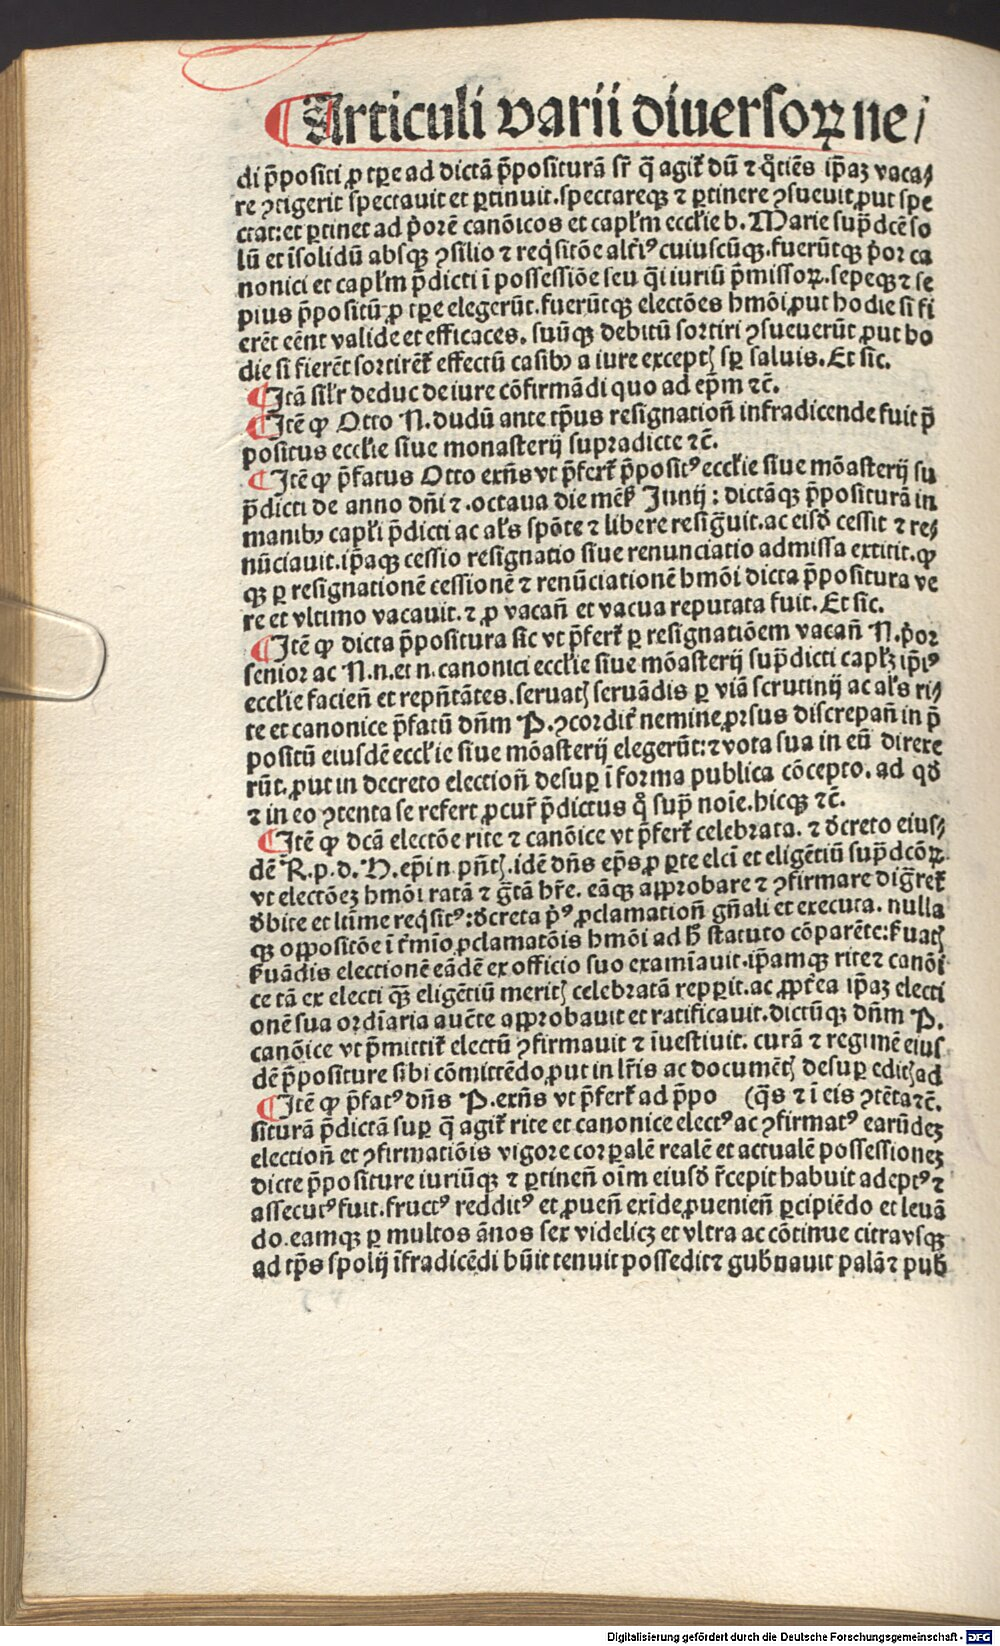 ¶Articuli varii diuersoꝝ ne/
di p̄positi ꝓ tꝑe ad dictā p̄positurā sr̄ q̄ agit̄ dū ⁊ q̊tiēs ip̄aꝫ vaca/
re ꝯtigerit spectauit et ꝑtinuit.spectareqꝫ ⁊ ꝑtinere ꝯsueuit ꝓut spe
ctat:et ꝑtinet ad p̓orē canōicos et capl̄m eccl̄ie b. Marie sup̄dcē so
lū et īsolidū absqꝫ ꝯsilio ⁊ reqͥsitōe alt̓iꝰ cuiuscūqꝫ.fuerūtqꝫ p̓or ca
nonici et capl̄m p̄dicti ī possessiōe seu q̄i iuriū p̄missoꝝ.sepeqꝫ ⁊ se
pius p̄positū ꝓ tꝑe elegerūt.fuerūtqꝫ electōes hmōi ꝓut hodie si fi
erēt eēnt valide et efficaces. suūqꝫ debitū sortiri ꝯsueuerūt ꝓut ho
die si fierēt sortirēt̄ effectū casibꝰ a iure exceptꝭ sꝑ saluis. Et sic.
¶Itā sil̓r deduc de iure cōfirmādi quo ad ep̄m ⁊c̄.
¶Itē ꝙ Otto N. dudū ante tp̄us resignatioñ infradicende fuit p̄
positus eccl̄ie siue monasterij supradicte ⁊c̄.
¶Itē ꝙ p̄fatus Otto exñs vt p̄fert̄ p̄positꝰ eccl̄ie siue mōasterij su
p̄dicti de anno dn̄i ⁊.octaua die mēs̄ Junij : dictāqꝫ p̄positurā in
manibꝰ capl̄i p̄dicti ac al̓s spōte ⁊ libere resiḡuit.ac eisd̄ cessit ⁊ re/
nūciauit.ip̄aqꝫ cessio resignatio siue renunciatio admissa extitit.ꝙ
qꝫ ꝑ resignationē cessionē ⁊ renūciationē hmōi dicta p̄positura ve
re et vltimo vacauit.⁊ ꝓ vacañ et vacua reputata fuit. Et sic.
¶Itē ꝙ dicta p̄positura sic vt p̄fert̄ ꝑ resignatiōem vacañ N.p̓or
senior ac N.n.et n.canonici eccl̄ie siue mōasterij sup̄dicti capl̄ꝫ ip̄iꝰ
eccl̄ie facieñ et repñtātes.seruatꝭ seruādis ꝑ viā scrutinij ac al̓s ri/
te et canonice p̄fatū dn̄m P.ꝯcordit̓ nemine ꝓrsus discrepañ in p̄
positū eiusdē eccl̄ie siue mōasterij elegerūt:⁊ vota sua in eū direxe
rūt.ꝓut in decreto electioñ desuꝑ ī forma publica cōcepto. ad qd̄
⁊ in eo ꝯtenta se refert ꝓcur̄ p̄dictus q̊ sup̄ noīe.hicqꝫ ⁊c̄.
¶Itē ꝙ dcā electōe rite ⁊ canōice vt p̄fert̄ celebrata. ⁊ d̄creto eius/
dē R.p.d.H.ep̄i n p̄ñtꝭ.idē dn̄s ep̄s ꝓ ꝑte elcī et eligētiū sup̄dcōꝝ.
vt electōeꝫ hmōi ratā ⁊ g̓tā hr̄e. eāqꝫ approbare ⁊ ꝯfirmare dig̓ret̄
d̄bite et ltīme reqͥsitꝰ:d̄creta p̓ꝰ ꝓclamatioñ gn̄ali et executa. nulla
qꝫ oppositōe ī t̓mīo ꝓclamatōis hmōi ad h̄ statuto cōparēte:s̓uatꝭ
s̓uādis electionē eādē ex officio suo examīauit.ip̄amqꝫ rite⁊ canōi
ce tā ex electi qꝫ̄ eligētiū meritꝭ celebratā repꝑit.ac ꝓpt̓ea ip̄aꝫ electi
onē sua ordīaria auc̄te approbauit et ratificauit.dictūqꝫ dn̄m P.
canōice vt p̄mittit̄ electū ꝯfirmauit ⁊ īuestiuit. curā ⁊ regimē eius
dē p̄positure sibi cōmittēdo ꝓut in lr̄is ac documētꝭ desuꝑ editꝭ ad
¶Itē ꝙ p̄fatꝰ dn̄s P.exñs vt p̄fert̄ ad p̄po (q̄s ⁊ ī eis ꝯtēta ⁊c̄.
siturā p̄dictā suꝑ q̄ agit̄ rite et canonice electꝰ ac ꝯfirmatꝰ earūdeꝫ
electioñ et ꝯfirmatiōis vigore corꝑalē realē et actualē possessioneꝫ
dicte p̄positure iuriūqꝫ ⁊ ꝑtineñ oīm eiusd̄ r̓cepit habuit adeptꝰ ⁊
assecutꝰ fuit.fructꝰ redditꝰ et ꝓueñ exīde ꝓuenieñ ꝑcipiēdo et leuā
do.eamqꝫ ꝑ multos ānos sex videlicꝫ et vltra ac cōtinue citra vsqꝫ
ad tp̄s spolij īfradicēdi hūit tenuit possedit⁊ gub̓nauit palā⁊ pub̄
Digitalisierung gefördert durch die Deutsche Forschungsgemeinschaft - DFG